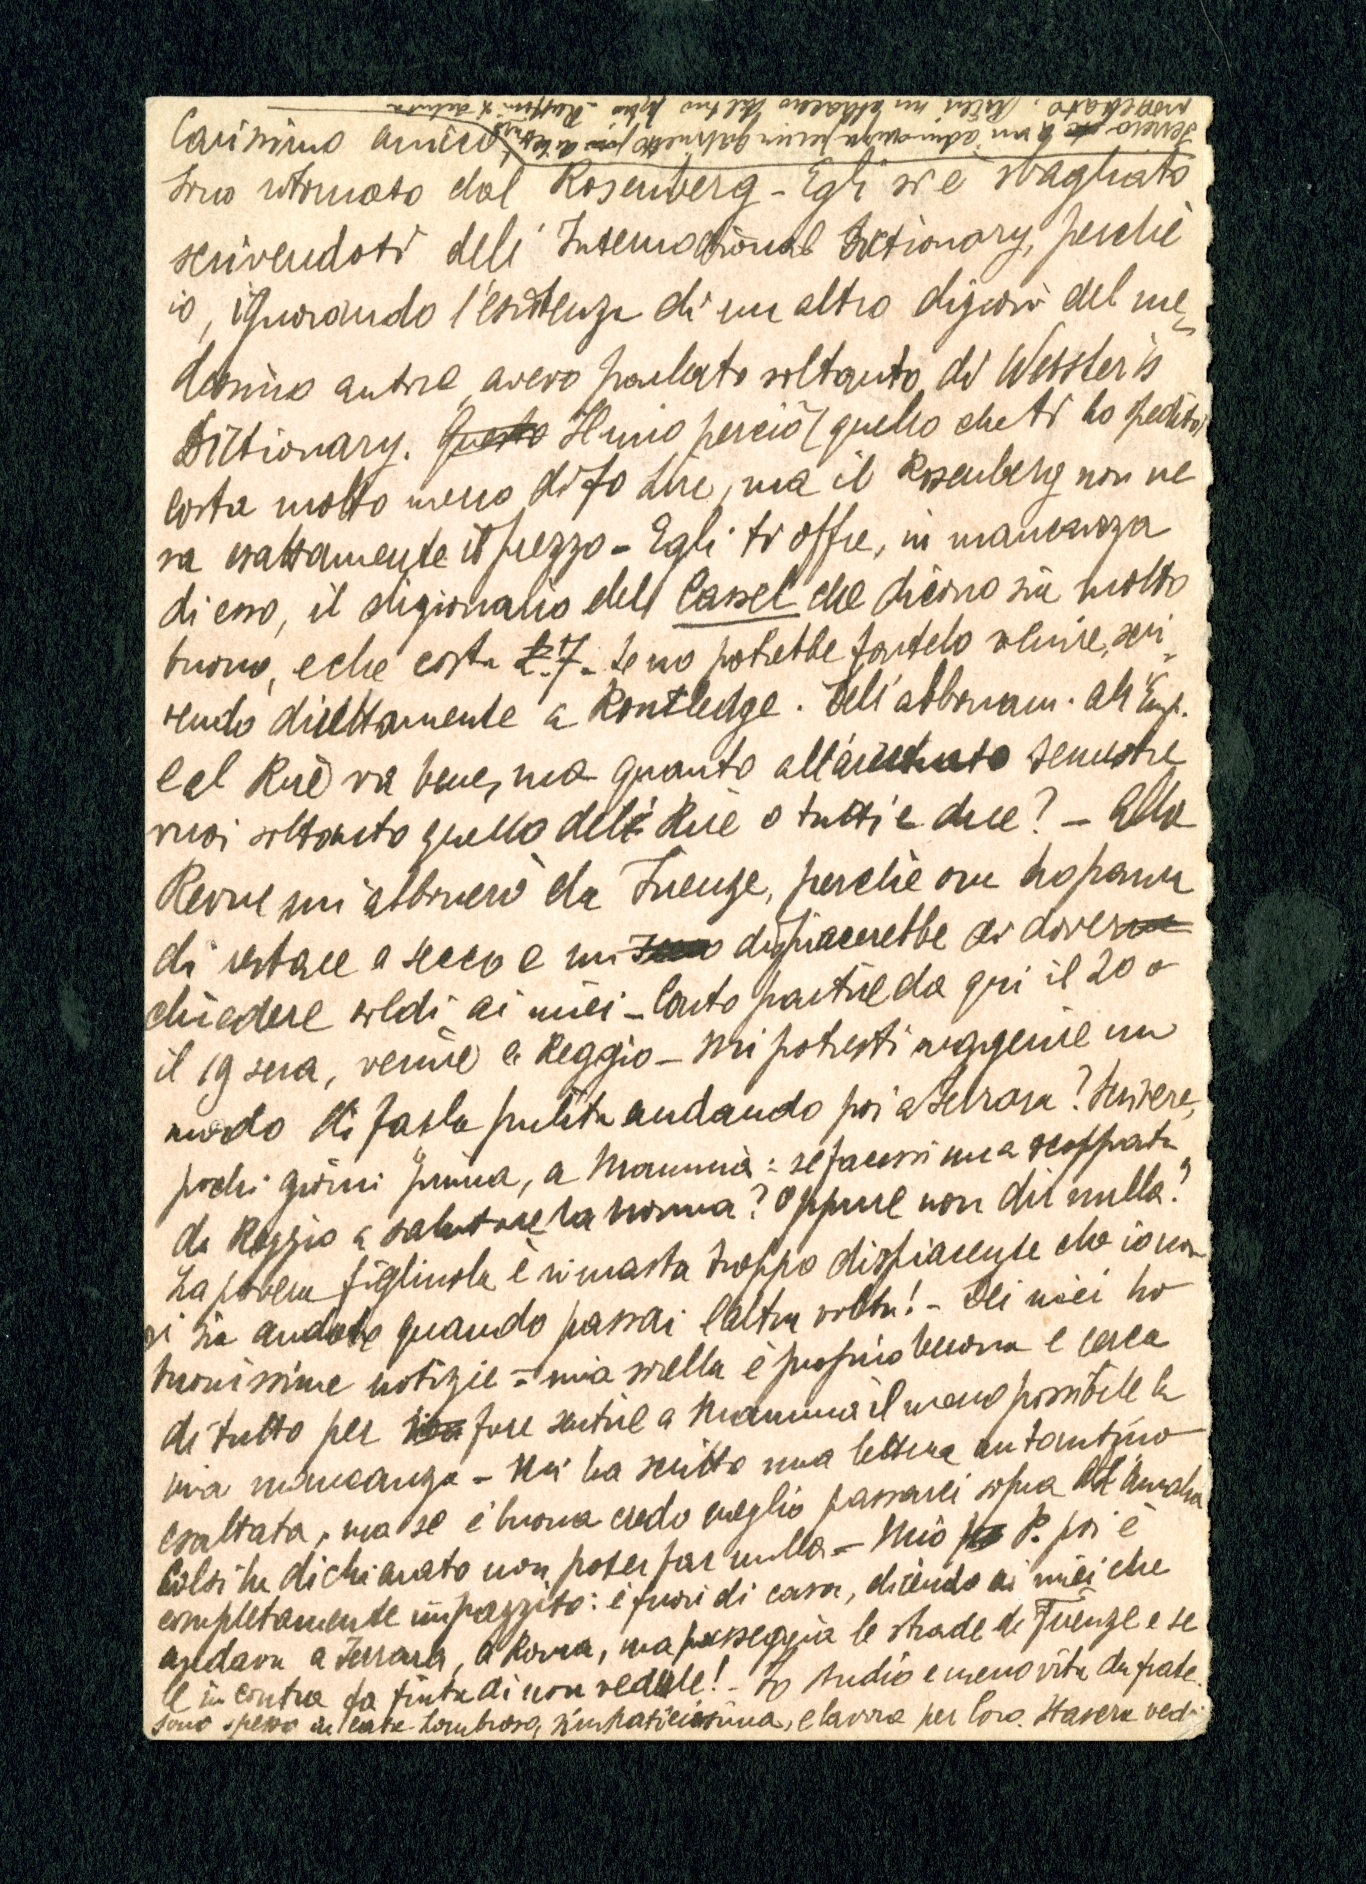 Carissimo amico,
Sono ritornato dal Rosenberg - Egli si è sbagliato
scrivendoti dell' International Dictionary, perchè
io, ignorando l'esistenza di un altro dizion. del me-
desimo autore, avevo parlato soltanto di Webster's
Dictionary. Questo Il mio perciò (quello che ti ho spedito)
costa molto meno di 70 Lire, ma il Rosenberg non ne
sa esattamente il prezzo - Egli ti offre, in mancanza
di esso, il dizionario del Cassel che dicono sia molto
buono, e che costa L. 7. Se no potrebbe fartelo venire, scri-
vendo direttamente a Routledge. Dell'abbonam. all'Emp.
e al Rire va bene, ma quanto all'arretrato semestre
vuoi soltanto quello del Rire o tutti e due? - Alla
Revue mi abbonerò da Firenze, perchè ora ho paura
di restare a secco e mi dispiacerebbe di dover
chiedere soldi ai miei - Conto partire da qui il 20 o
il 19 sera, venire a Reggio - Mi potresti suggerire un
modo di farla pulita andando poi a Ferrara? Scrivere,
pochi giorni prima, a Mamma: se facessi una scappata
da Reggio a salutare la nonna? Oppure non dir nulla?
La povera figliuola è rimasta troppo dispiacente che io non
ci sia andato quando passai l'altra volta! - Dei miei ho
buonissime notizie - mia sorella è proprio buona e cerca
di tutto per fare sentire a Mamma il meno possibile la
mia mancanza - Mi ha scritto una lettera un tantino
esaltata, ma se è buona credo meglio passarci sopra
Colsi ha dichiarato non poter far nulla - Mio P. poi è
completamente impazzito: è fuori di casa, dicendo ai miei che
andava a Ferrara, a Roma, ma passeggia le strade di Firenze e se
le incontra fa finta di non vederle! - Io studio e meno vita da frate.
Sono spesso in casa Lombroso, simpaticissima, e lavoro per loro. Stasera vedi